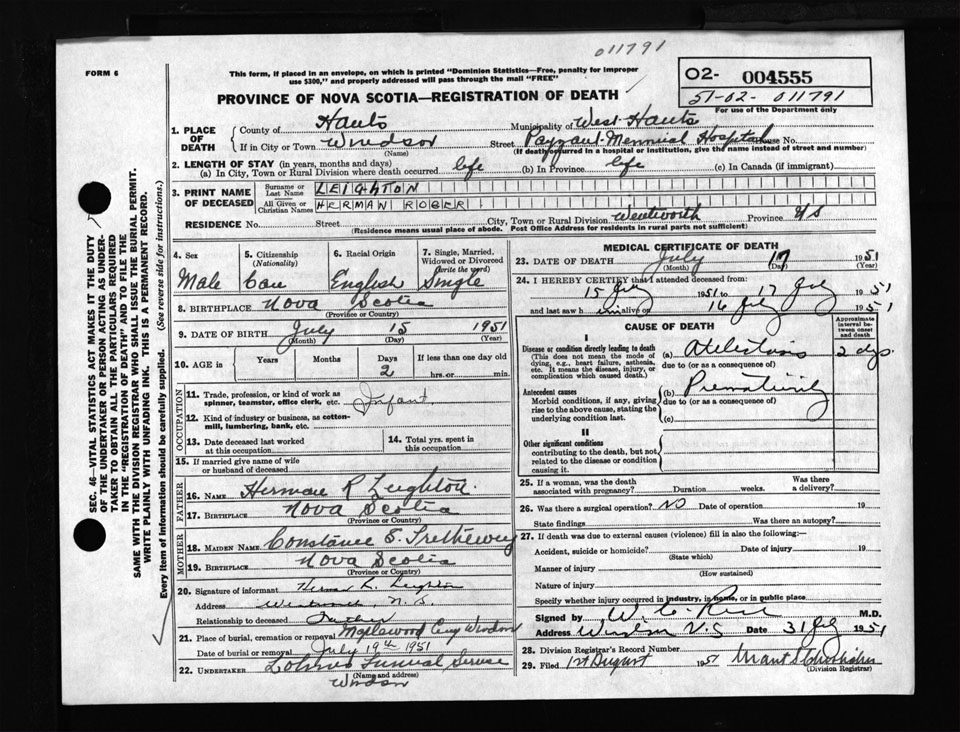 011791
FORM 6
This form, if placed in an envelope, on which is printed "Dominion Statistics—Free, penalty for improper
use $300," and properly addressed will pass through the mail "FREE"
O2- 004555
51-02-011791
For use of the Department only
PROVINCE OF NOVA SCOTIA—REGISTRATION OF DEATH
1. PLACE OF DEATH
County of Hants Municipality of West Hants
If in City or Town Windsor Street Payzant Memorial Hospital House No.
(Name) (If death occurred in a hospital or institution, give the name instead of street and number)
2. LENGTH OF STAY (in years, months and days)
(a) In City, Town or Rural Division where death occurred life (b) In Province life (c) In Canada (if immigrant)
3. PRINT NAME OF DECEASED
Surname or Last Name LEIGHTON
All Given or Christian Names HERMAN ROBER
RESIDENCE No. Street City, Town or Rural Division Wentworth Province N S
(Residence means usual place of abode. Post Office Address for residents in rural parts not sufficient)
4. Sex 5. Citizenship (Nationality) 6. Racial Origin 7. Single, Married, Widowed or Divorced (write the word)
Male Can English Single
8. BIRTHPLACE Nova Scotia
(Province or Country)
9. DATE OF BIRTH July 15 1951
(Month) (Day) (Year)
10. AGE in Years Months Days If less than one day old
2 hrs. or min.
OCCUPATION
11. Trade, profession, or kind of work as
spinner, teamster, office clerk, etc. Infant
12. Kind of industry or business, as cotten-
mill, lumbering, bank, etc.
13. Date deceased last worked
at this occupation
14. Total yrs. spent in
this occupation
15. If married give name of wife
or husband of deceased
FATHER
16. NAME Herman R Leighton
17. BIRTHPLACE Nova Scotia
(Province or Country)
MOTHER
18. MAIDEN NAME Constance E. Trethewey
19. BIRTHPLACE Nova Scotia
(Province or Country)
20. Signature of informant Herman R. Leighton
Address Wentworth, N.S.
Relationship to deceased Father
21. Place of burial, cremation or removal Maplewood Cemy Windsor
Date of burial or removal July 19th 1951
22. UNDERTAKER Funeral Service
(Name and address)
Windsor
MEDICAL CERTIFICATE OF DEATH
23. DATE OF DEATH July 17 1951
(Month) (Day) (Year)
24. I HEREBY CERTIFY that I attended deceased from:
15 July 1951 to 17 July 1951
and last saw him alive on 16 July 1951
CAUSE OF DEATH
Approximate interval between onset and death
I
Disease or condition directly leading to death
(This does not mean the mode of
dying, e.g., heart failure, asthenia,
etc. It means the disease, injury, or
complication which caused death.)
(a) Atelectasis 2 dys.
due to (or as a consequence of)
Antecedent causes
Morbid conditions, if any, giving
rise to the above cause, stating the
underlying condition last.
(b) Prematurity
due to (or as a consequence of)
(c)
II
Other significant conditions
contributing to the death, but not
related to the disease or condition
causing it.
25. If a woman, was the death
associated with pregnancy? Duration weeks. Was there
a delivery?
26. Was there a surgical operation? NO Date of operation 19
State findings Was there an autopsy?
27. If death was due to external causes (violence) fill in also the following:—
Accident, suicide or homicide? Date of injury 19
(State which)
Manner of injury
(How sustained)
Nature of injury
Specify whether injury occurred in industry, in home, or in public place
Signed by M.D.
Address Windsor N.S Date 31 July 1951
28. Division Registrar's Record Number
29. Filed 1st August 1951
(Division Registrar)
SEC. 46—VITAL STATISTICS ACT MAKES IT THE DUTY
OF THE UNDERTAKER OR PERSON ACTING AS UNDER-
TAKER TO OBTAIN ALL THE PARTICULARS REQUIRED
IN THE "REGISTRATION OF DEATH" AND TO FILE THE
SAME WITH THE DIVISION REGISTRAR WHO SHALL ISSUE THE BURIAL PERMIT.
WRITE PLAINLY WITH UNFADING INK. THIS IS A PERMANENT RECORD.
Every item of information should be carefully supplied. (See reverse side for instructions.)